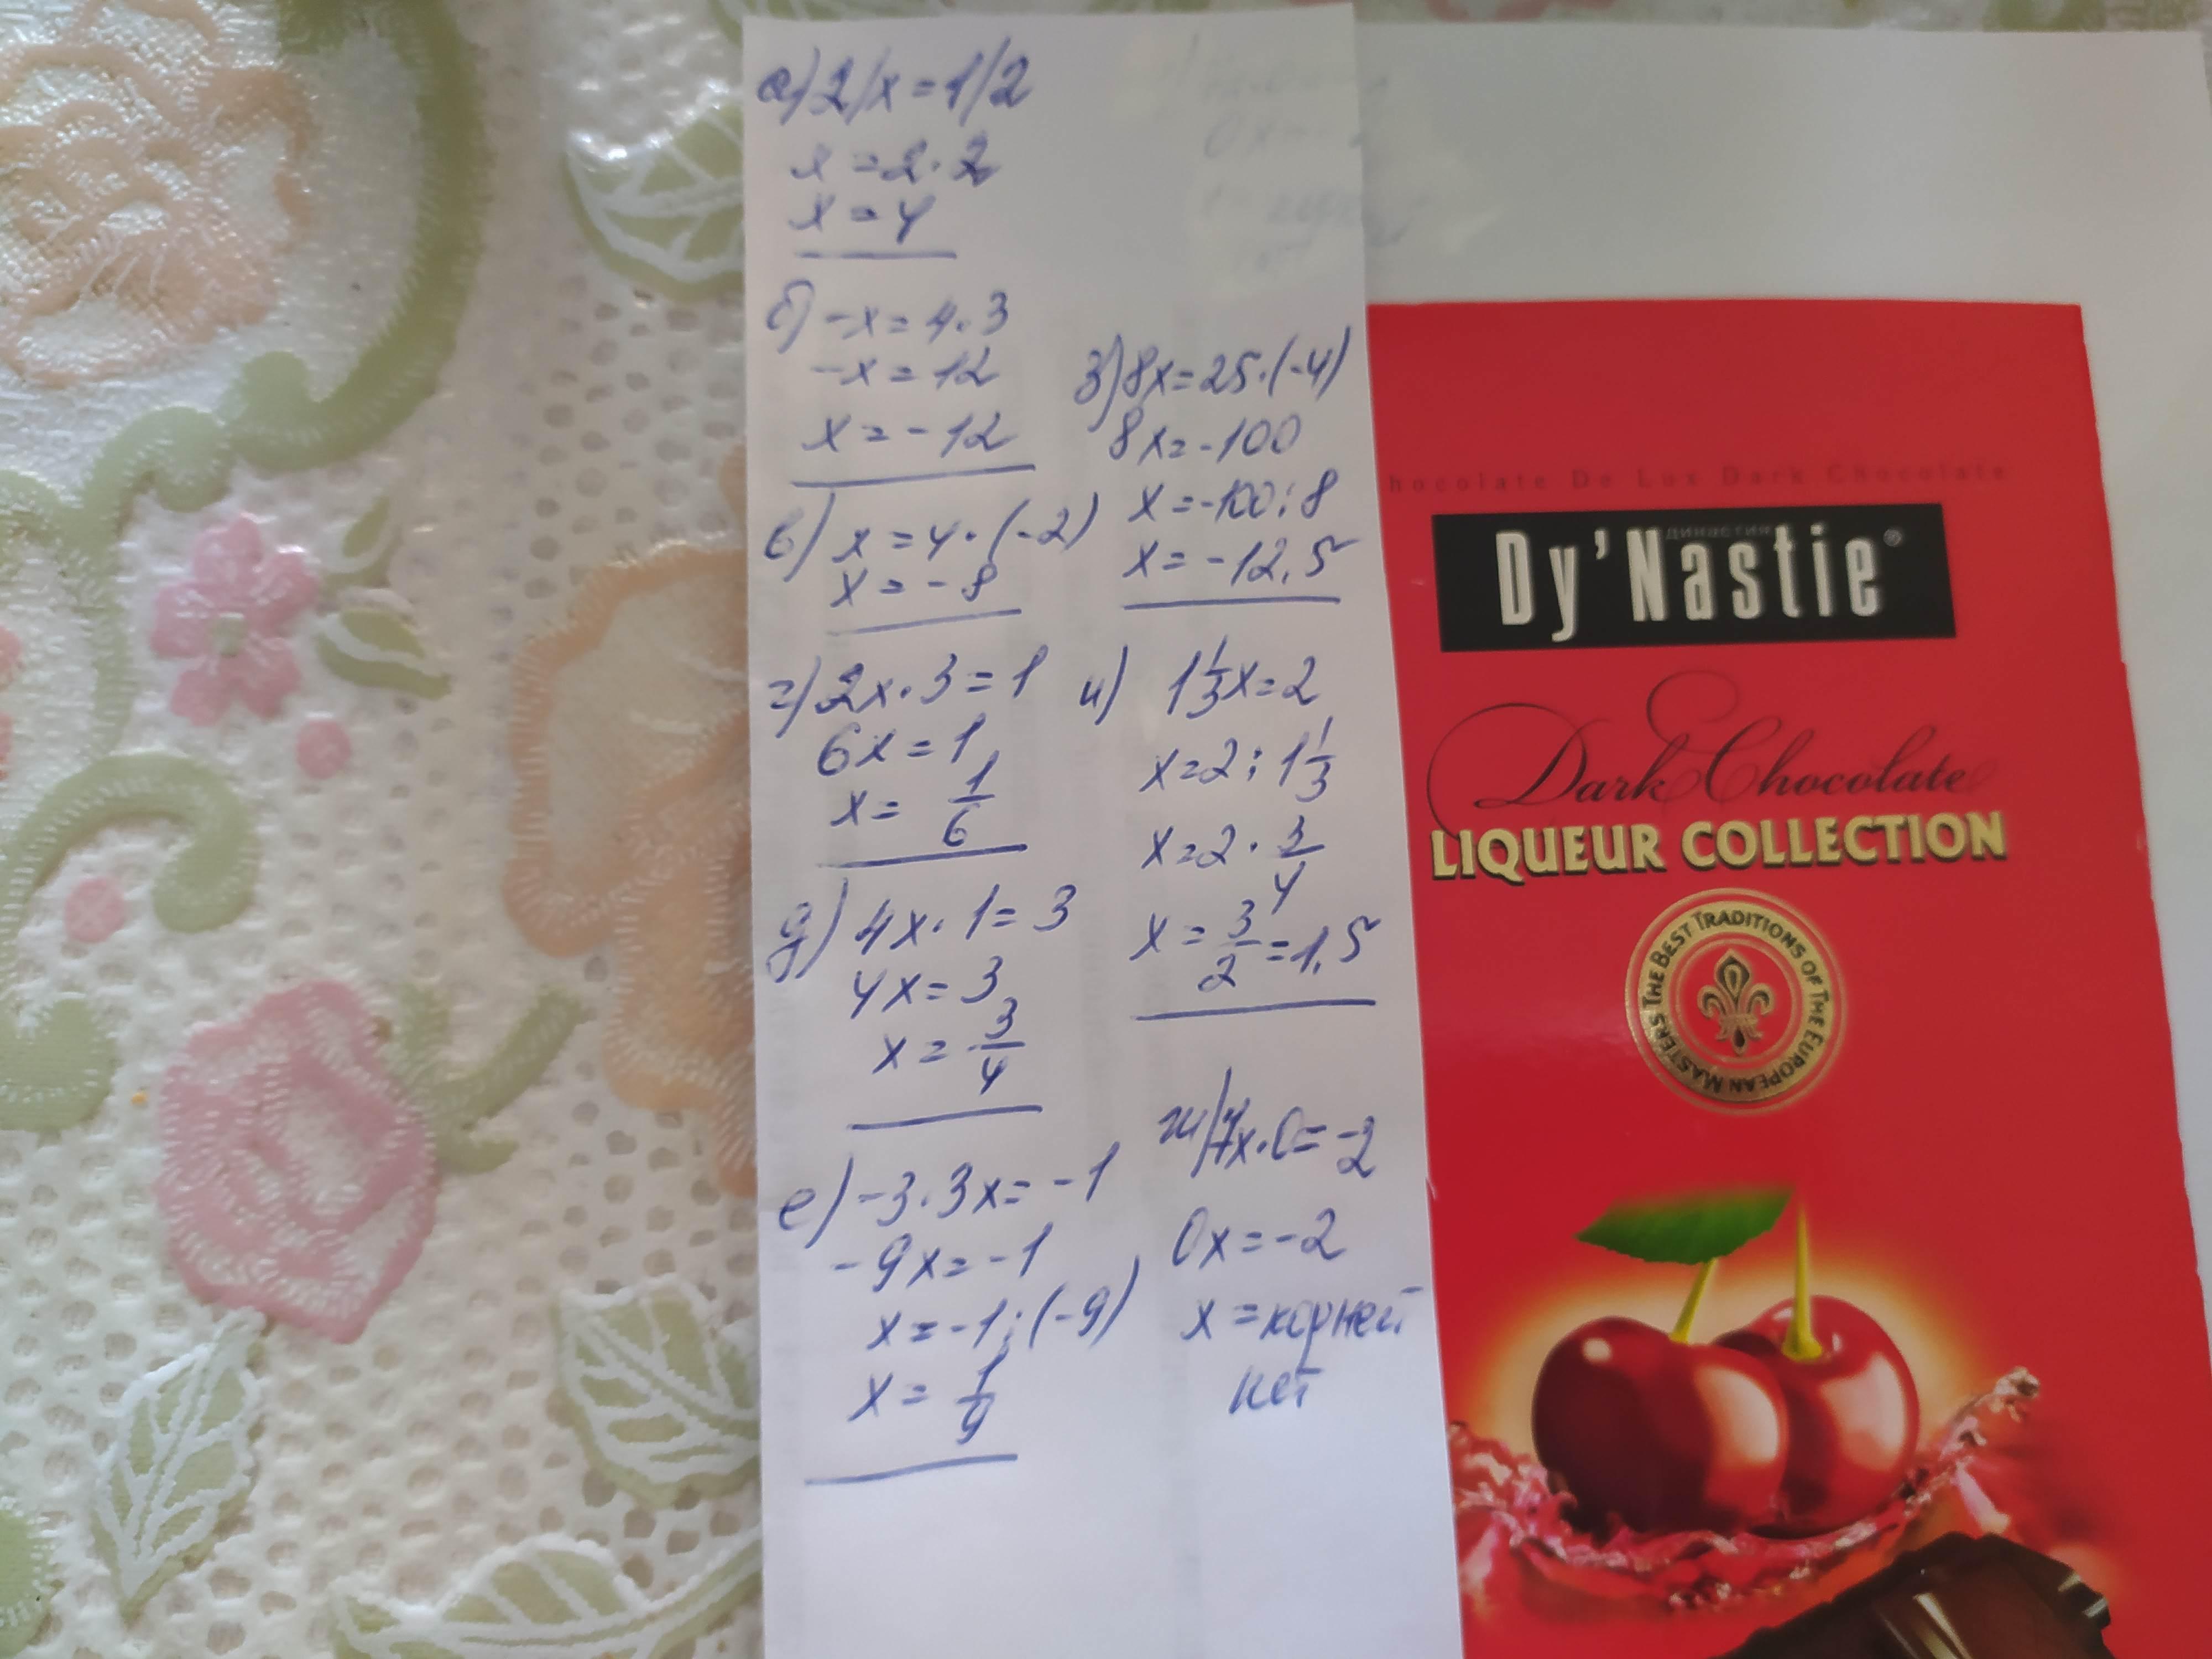 а) 2/x=1/2
x=2·2
x=4
б) -x=4·3
-x=12
x=-12
в) x=4·(-2)
x=-8
г) 2x·3=1
6x=1
x=1/6
д) 4x·1=3
4x=3
x=3/4
е) -3·3x=-1
-9x=-1
x=-1:(-9)
x=1/9
з) 8x=25·(-4)
8x=-100
x=-100:8
x=-12,5
и) 1 1/3x=2
x=2:1 1/3
x=2·3/4
x=3/2=1,5
ж) 7x·0=-2
0x=-2
x=корней
нет
hocolate De Lux Dark Chocolate
ДИНАСТИЯ
Dy'Nastie®
Dark Chocolate
LIQUEUR COLLECTION
THE BEST TRADITIONS OF THE EUROPEAN MASTERS